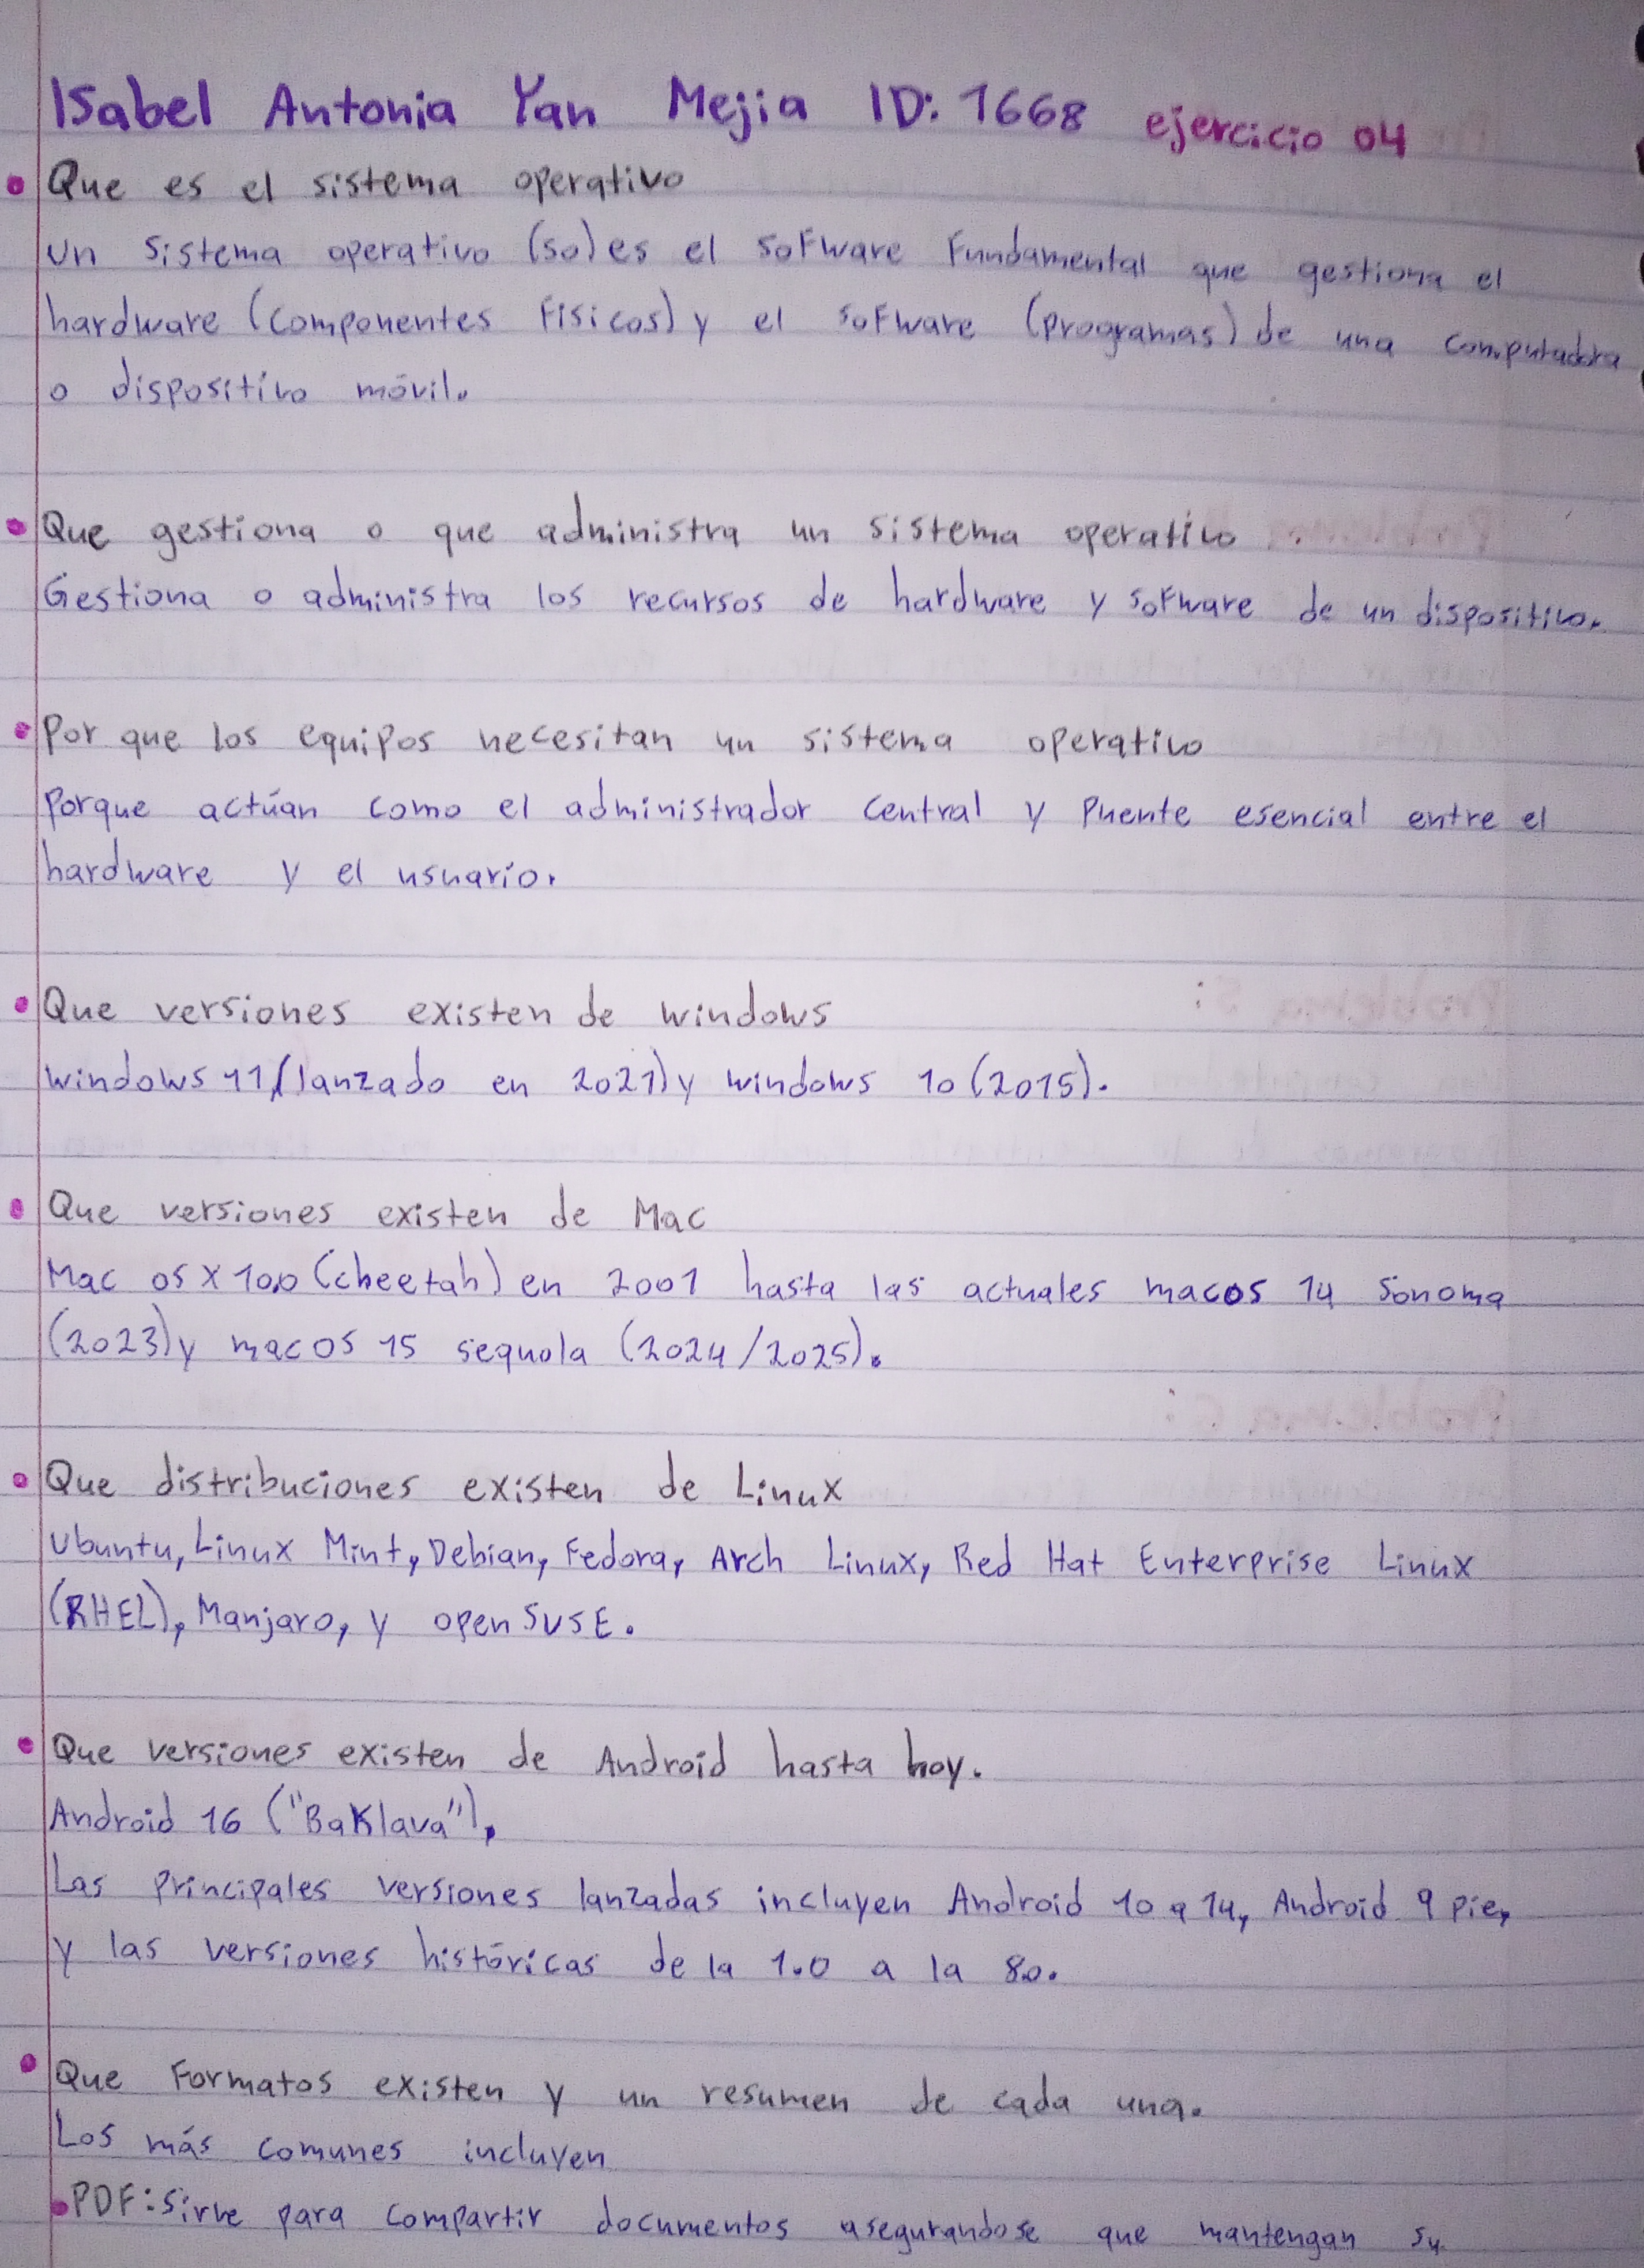 Isabel Antonia Yan Mejia ID: 1668 ejercicio 04
• Que es el sistema operativo
Un sistema operativo (so) es el sofware fundamental que gestiona el
hardware (componentes físicos) y el sofware (programas) de una computadora
o dispositivo móvil.
• Que gestiona o que administra un sistema operativo
Gestiona o administra los recursos de hardware y sofware de un dispositivo.
• Por que los equipos necesitan un sistema operativo
Porque actúan como el administrador central y puente esencial entre el
hardware y el usuario.
• Que versiones existen de windows
windows 11 (lanzado en 2021) y windows 10 (2015).
• Que versiones existen de Mac
Mac os X 10.0 (cheetah) en 2001 hasta las actuales macos 14 Sonoma
(2023) y macOS 15 sequola (2024/2025).
• Que distribuciones existen de Linux
Ubuntu, Linux Mint, Debian, Fedora, Arch Linux, Red Hat Enterprise Linux
(RHEL), Manjaro, y openSUSE.
• Que versiones existen de Android hasta hoy.
Android 16 ("Baklava"),
Las principales versiones lanzadas incluyen Android 10 a 14, Android 9 pie,
y las versiones históricas de la 1.0 a la 8.0.
• Que Formatos existen y un resumen de cada una.
Los más comunes incluyen
• PDF: Sirve para compartir documentos asegurandose que mantengan su